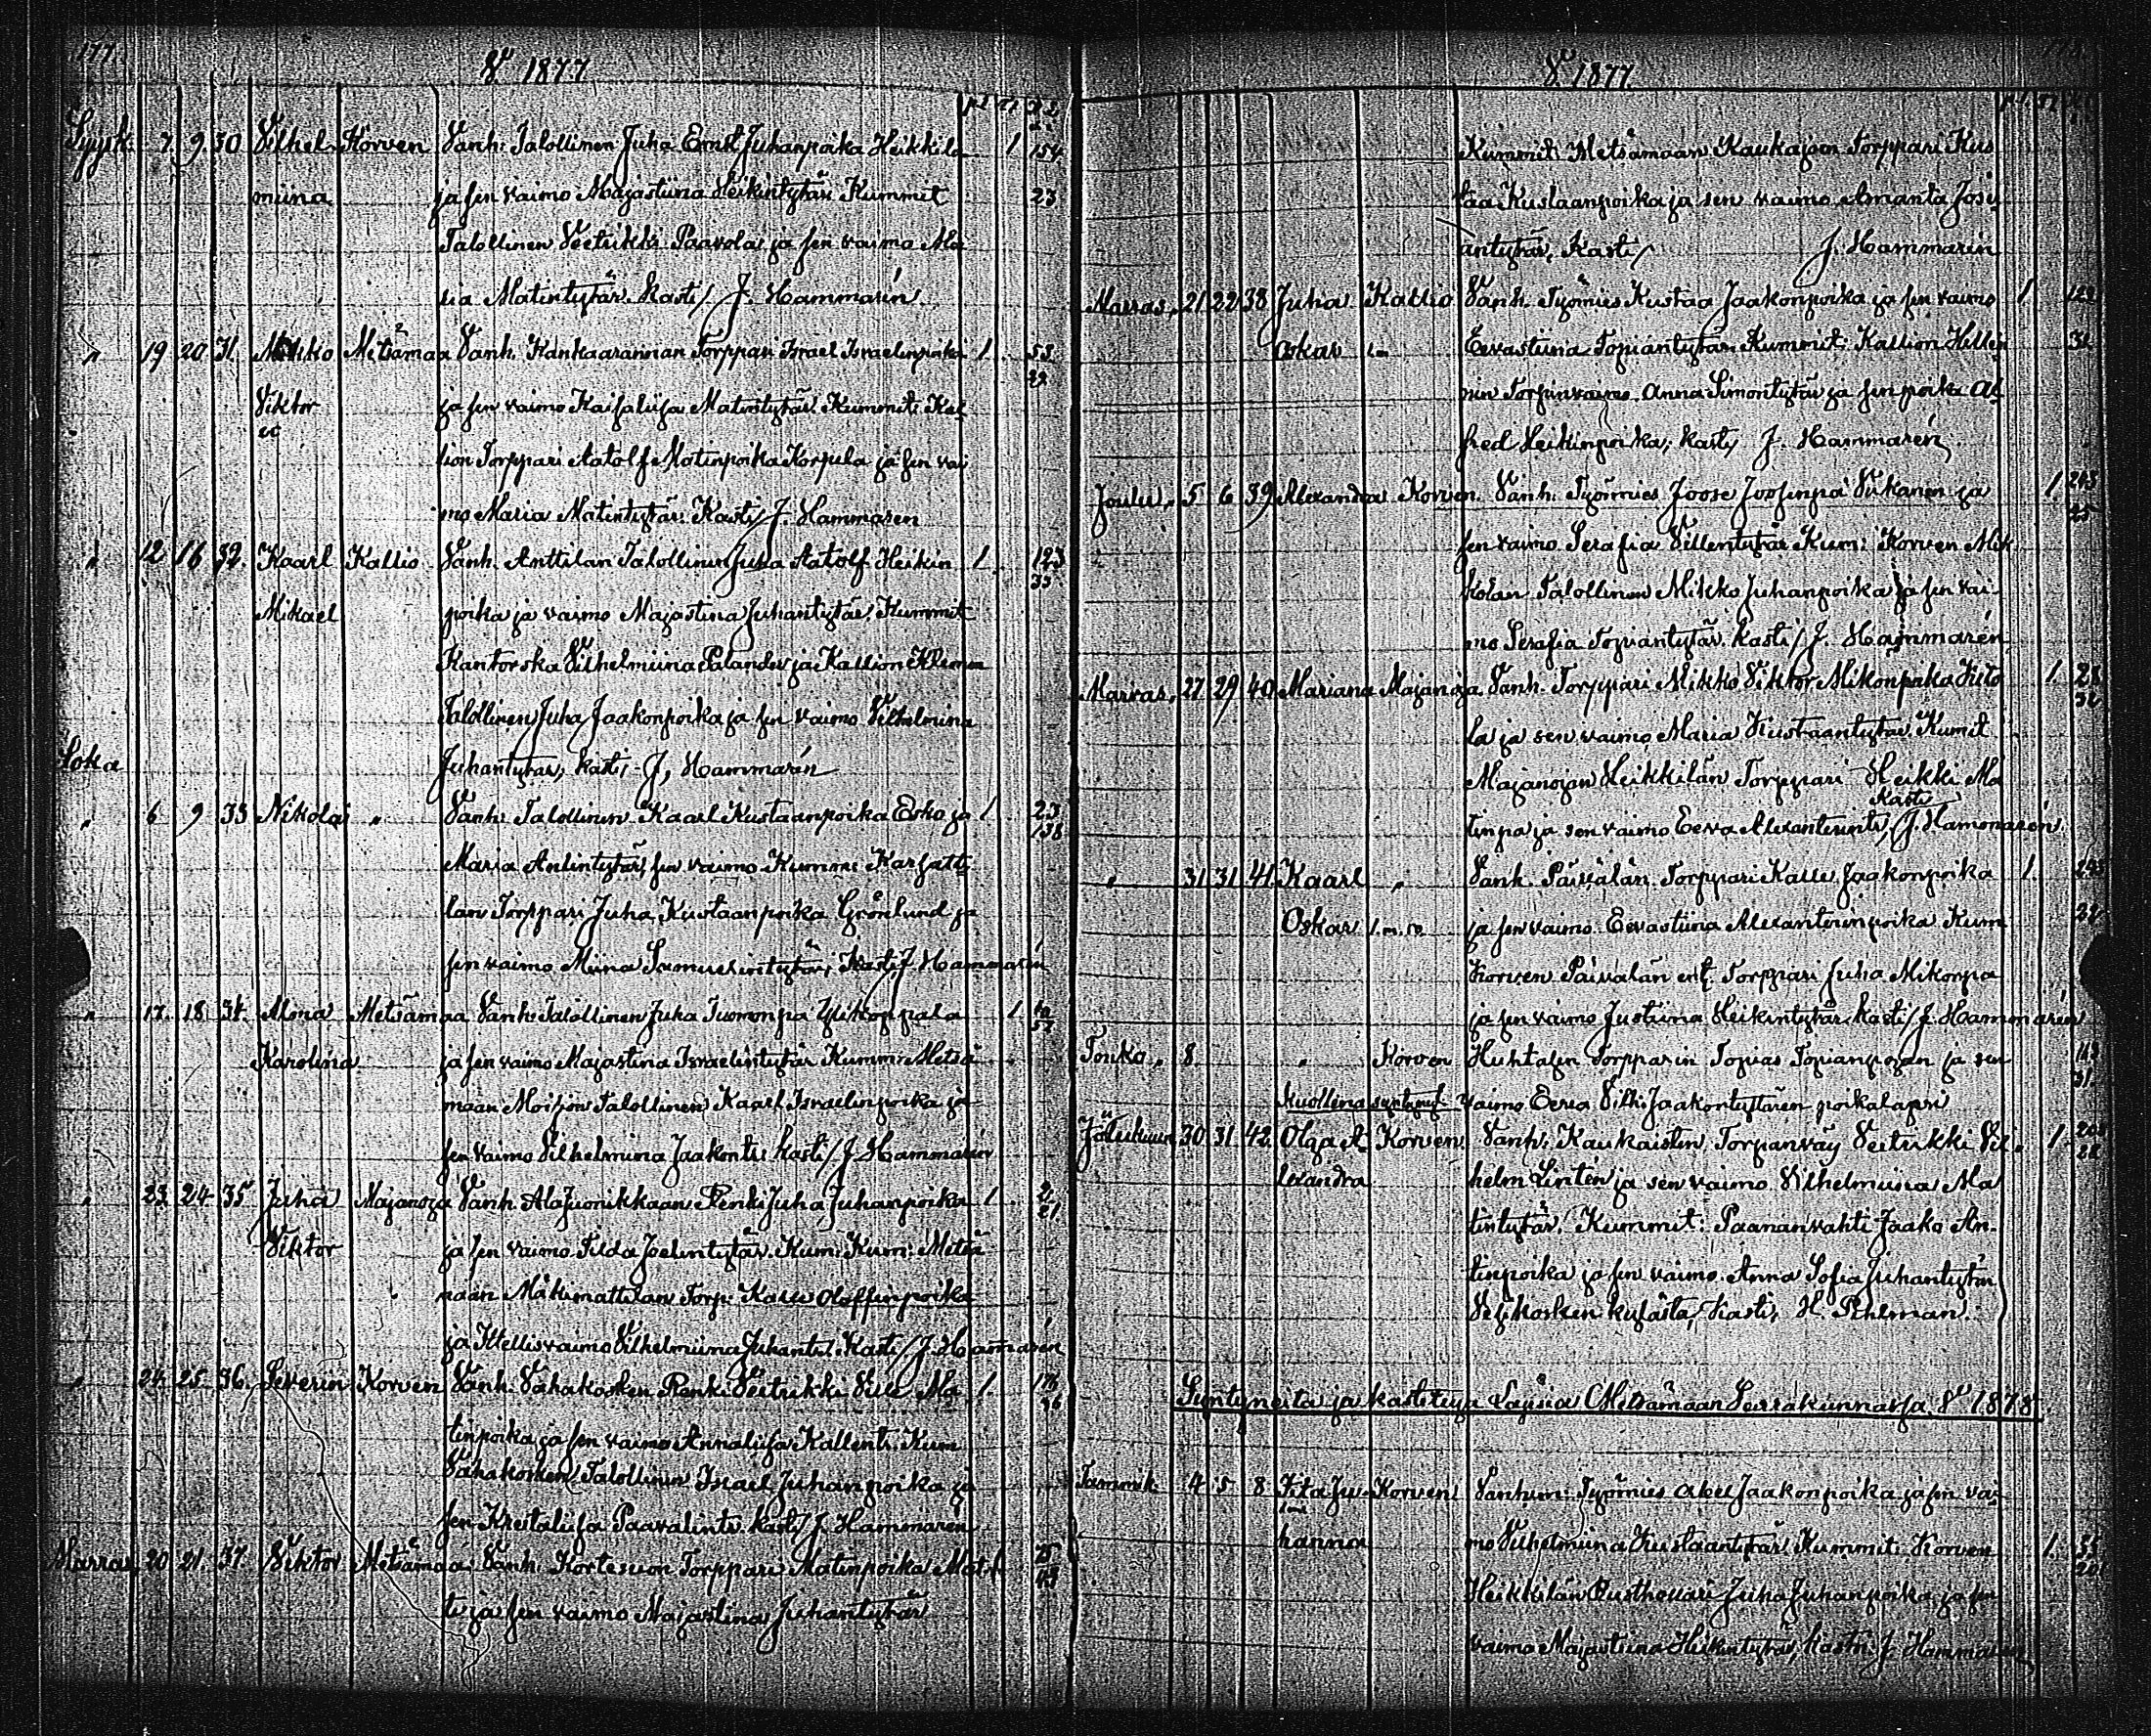 177.
Vu 1877
Syysk. 7. 9. 30 Vilhel Korven Vanh: Talollinen Juha Ernst Juhanpoika Heikkilä 1 154
miina ja sen vaimo Majastiina Heikintytär Kummit 23
Talollinen Veetrikki Paavola ja sen vaimo Ma
ria Matintytär. Kasti/ J. Hammarén
" 19 20 31. Mikko Metsämaa Vanh. Hankaarannan Torppari Israel Israelinpoika 1. 53
22
Viktor ja sen vaimo Kaisaliisa Matintytär Kummit: Kal
lion Torppari Aatolf Matinpoika Korpela ja sen vai
mo Maria Matintytär: Kasti/ J. Hammaren
" 12 16 32. Kaarl Kallio Vanh. Anttilan Talollinen Juha Aatolf Heikin 1. 123
35
Mikael poika ja vaimo Majastina Juhantytär. Kummit
Kantorska Vilhelmiina Palander ja Kallion
Talollinen Juha Jaakonpoika ja sen vaimo Vilhelmina
Loka
Juhantytär, kasti; J, Hammarén
" 6 9 33 Nikolai " Vanh. Talollinen Kaarl Kustaanpoika Esko ja 1 23
138
Maria Antintytär, sen vaimo Kumm: Karhatti
lan Torppari Juha Kustaanpoika Grönlund ja
sen vaimo Miina Samuelintytär; Kasti J. Hammarén
" 17. 18. 34. Alma Metsämaa Vanh: Talollinen Juha Tuomonpa Ylikoppala 1
57
Karolina ja sen vaimo Majastina Israelintytär Kumm: Metsä
maan Moision Talollinen Kaarl Israelinpoika ja
sen vaimo Vilhelmina Jaakontr: kasti/ J. Hammarén
" 23 24 35 Juha Majanoja Vanh. AlaJuonikkaan Renki Juha Juhanpoika 1. 2
21.
Viktor ja sen vaimo Tilda Joelintytär. Kum: Kum: Metsä
maan Mäkimattilan Torp: Kalle Oloffinpoika
ja Itellisvaimo Vilhelmiina Juhantr. Kasti/ J. Hammarén
" 24 25 36. Severin Korven Vanh. Vähäkosken Renki Veetrikki Ville Ma 1. 176
tinpoika ja sen vaimo Annaliisa Kallentr. Kum
Vähäkosken Talollinen Israel Juhanpoika ja
sen Kreetaliisa Paavalintr kasti/ J. Hammarén
Marras 20 21. 37. Viktor Metsämaa Vanh. Kortesuon Torppari Matinpoika Mat 1. 25
ti ja sen vaimo Majastina Juhantytär
Vu 1877.
Kummit: Metsämaan Kaukajoen Torppari Kus
taa Kustaanpoika ja sen vaimo Amanta Josi
antytär, Kasti/ J. Hammarén
Marras. 21 22 38 Juha Kallio Vanh. Työmies Kustaa Jaakonpoika ja sen vaimo 1 122
Oskar Eevastiina Topiantytär. Kummit: Kallion 31
nin Torpinvaimo Anna Simontytär ja sen poika Al
fred Heikinpoika, kasti J. Hammarén
Joulu. 5 6 39 Alexandra Korven. Vanh. Työmies Joose Joosenpa Vikanen ja 1. 243
25
sen vaimo Serafia Villentytär Kum: Korven Mik
kolan Talollinen Mikko Juhanpoika ja sen vai
mo Serafia Topiantytär. Kasti/ J. Hammarén
Marras. 27 29 40 Mariana Majanoja Vanh. Torppari Mikko Viktor Mikonpoika Kito 1. 28
la ja sen vaimo Maria Kustaantytär. Kumit
Majanojan Heikkilän Torppari Heikki Ma
tinpa ja sen vaimo Eeva Alexanterintr, Kasti J. Hammarén.
" 31 31 41. Kaarl " Vanh. Päivälän Torppari Kalle Jaakonpoika 1. 243
Oskar ja sen vaimo Eevastiina Alexanterinpoika Kum 22
Korven Päivälän ent. Torppari Juha Mikonpa
ja sen vaimo Justiina Heikintytär. kasti/ J. Hammarén
Touko. 8 " Korven Huhtalan Torpparin Topias Topianpojan ja sen 113
31.
kuollena syntynyt vaimo Eeva Vilh: Jaakontyttären poikalapsi
Jouluk 30. 31. 42. Olga A Korven. Vanh. Kaukaisten Torpanväy Veetrikki Vil 1.
28
lexandra helm Lintén ja sen vaimo Vilhelmiina Ma
tintytär. Kummit: Paananvahti Jaako An
tinpoika ja sen vaimo Anna Sofia Juhantytär
Vesikosken kylästä, Kasti, H. Pihlman.
Syntyneitä ja kastetuja Lapsia Metsämaan Seurakunnassa Vu 1878
Tammik. 4 5 8 Fita Ju Korven Vanhim: Työmies Abel Jaakonpoika ja sen vai
hanna mo Vilhelmiina Kustaantytär Kummit: Korven 1. 33
20
Heikkilän Rusthollari Juha Juhanpoika ja sen
vaimo Majastiina Heikintytär, kasti: J. Hammarén